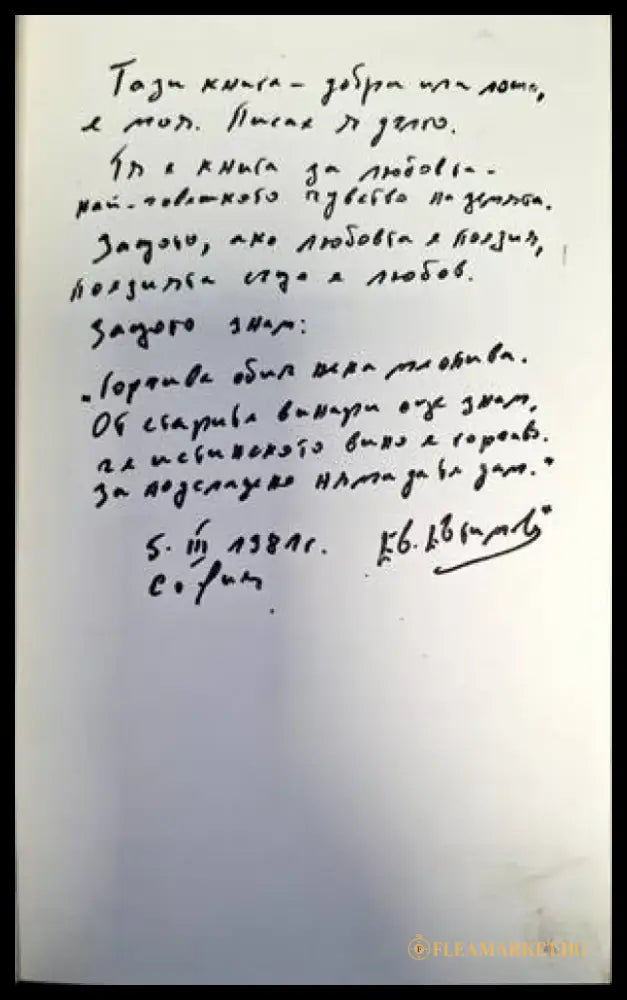 Тази книга – добра или лоша,
е моя. Писах я дълго.
Тя е книга за любовта –
най-човешкото чувство на земята.
Защото, ако любовта е поезия,
поезията също е любов.
Защото знам:
"Горчива обич нека ме опива.
От старите винари още знам,
че истинското вино е горчиво.
За подсладено няма да те дам."
5. III 1981г. Ев. Евтимов
София
FLEAMARKET.BG